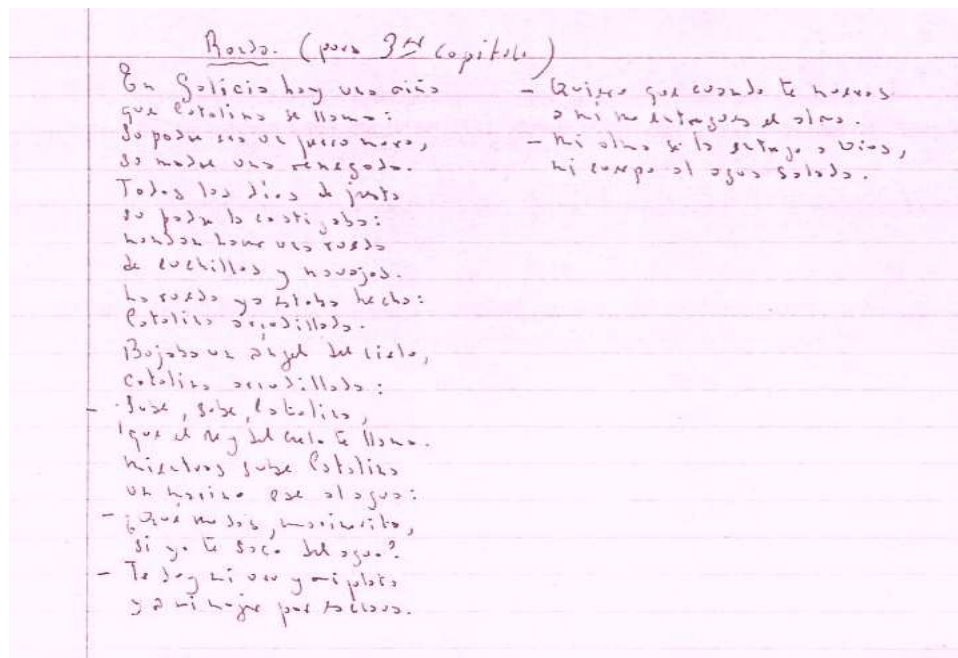 Banda. (para 3er capítulo)
En Galicia hay una niña
que Catalina se llama:
su padre era un perro moro,
su madre una renegada.
Todos los días de fiesta
su padre la castigaba:
mandan hacer una rueda
de cuchillos y navajas.
La rueda ya estaba hecha:
Catalina arrodillada.
Bajaba un ángel del cielo,
Catalina arrodillada:
- Sube, sube, Catalina,
que el rey del cielo te llama.
Mientras sube Catalina
un marino cae al agua:
- ¿Qué me das, marinerito,
si yo te saco del agua?
- Te doy mi oro y mi plata
y a mi mujer por esclava.
- Quiero que cuando te mueras
a mí me entregues el alma.
- Mi alma se la entrego a Dios,
mi cuerpo al agua salada.